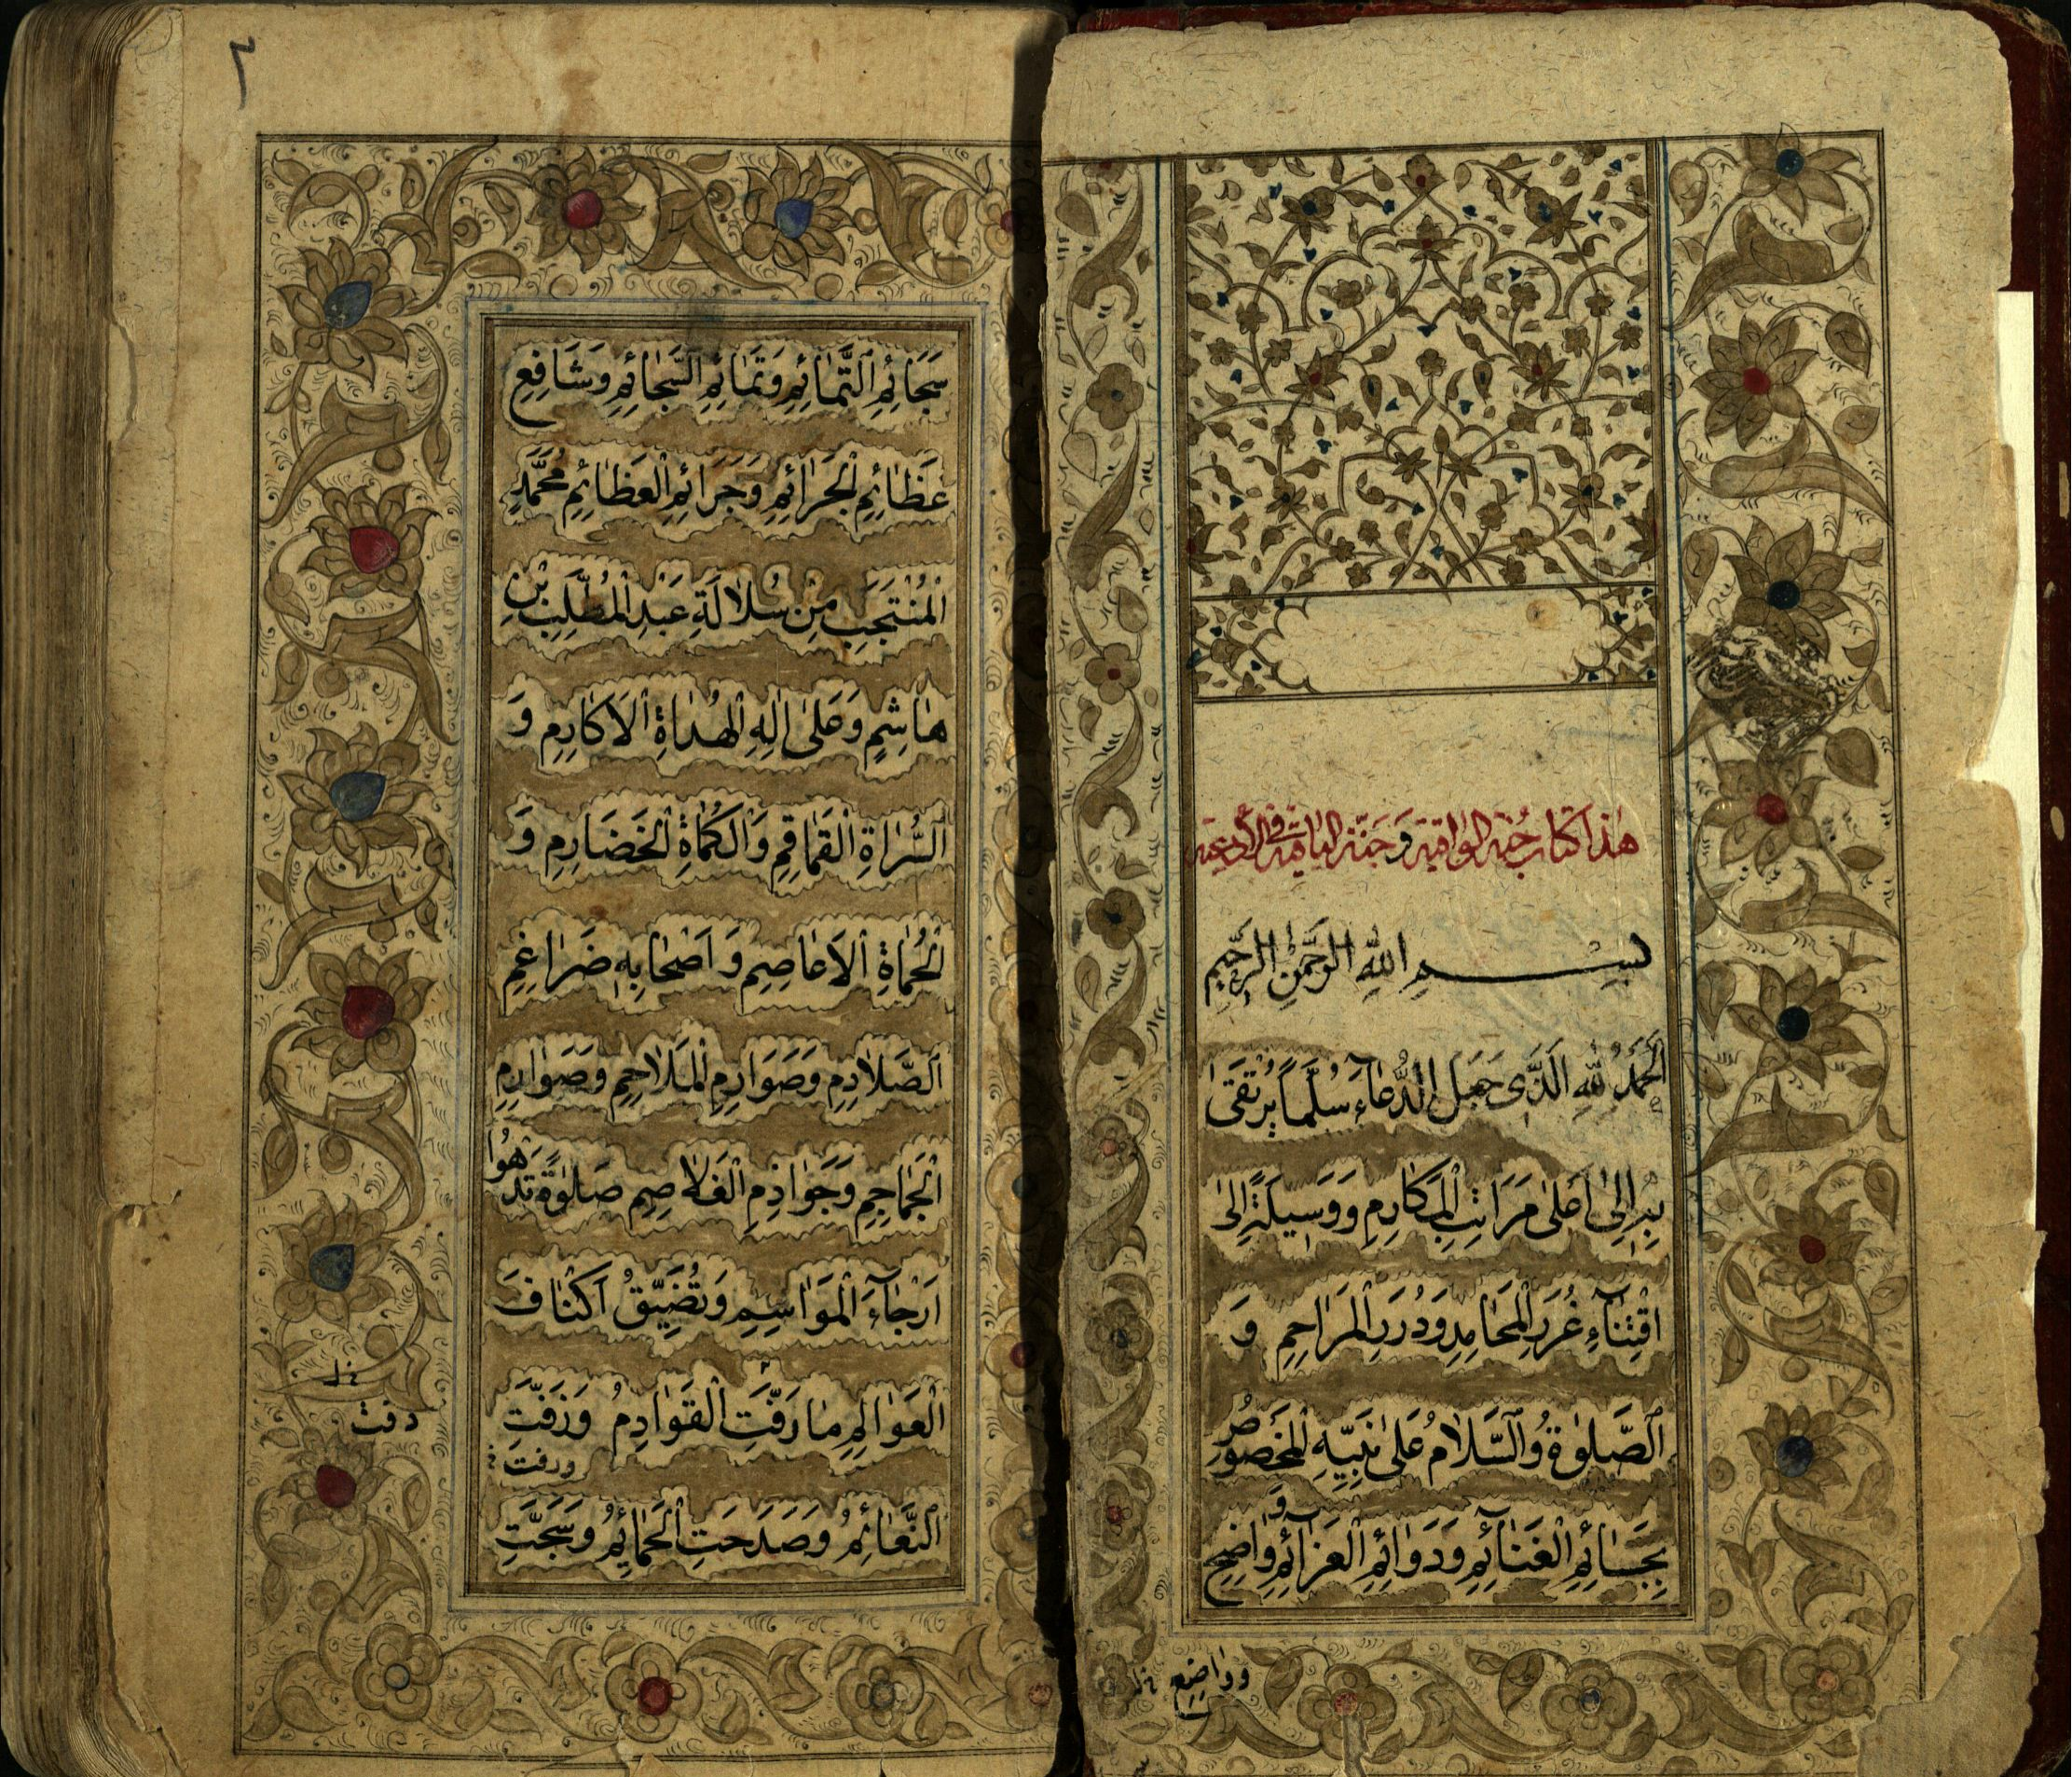 هٰذا كتاب جُنّة الواقية وَ جَنّة الباقية فى الأدعية
بِسْمِ اللّٰهِ الرَّحْمٰنِ الرَّحِيمِ
اَلْحَمْدُ لِلّٰهِ الَّذِى جَعَلَ الدُّعَاءَ سُلَّمًا يُرْتَقىٰ
بِهِ اِلىٰ اَعْلىٰ مَرَاتِبِ الْمَكَارِمِ وَوَسِيلَةً اِلىٰ
اقْتِنَاءِ غُرَرِ الْمَحَامِدِ وَدُرَرِ الْمَرَاحِمِ وَ
الصَّلوٰةُ وَالسَّلَامُ عَلىٰ نَبِيِّهِ الْمَخْصُوصِ
بِجَسَائِمِ الْغَنَائِمِ وَدَوَائِمِ الْعَزَائِمِ وَوَاضِحِ
وواضع خ‍ل
٢
سَجَائِمِ التَّمَائِمِ وَتَمَائِمِ السَّجَائِمِ وَشَافِعِ
عَظَائِمِ الْجَرَائِمِ وَجَرَائِمِ الْعَظَائِمِ مُحَمَّدٍ
الْمُنْتَجَبِ مِنْ سُلَالَةِ عَبْدِ الْمُطَّلِبِ بْنِ
هَاشِمٍ وَعَلىٰ اٰلِهِ الْهُدَاةِ الْاَكَارِمِ وَ
السُّرَاةِ الْقَمَاقِمِ وَالْكُمَاةِ الْخَضَارِمِ وَ
الْحُمَاةِ الْاَعَاصِمِ وَاَصْحَابِهِ ضَرَاغِمِ
الصَّلَادِمِ وَصَوَارِمِ الْمَلَاحِمِ وَصَوَارِمِ
الْجَمَاجِمِ وَجَوَاذِمِ الْغَلَاصِمِ صَلوٰةً تَدْهُوا
اَرْجَاءَ الْمَوَاسِمِ وَتُضَيِّقُ اَكْنَافَ
الْعَوَالِمِ مَا رَفَّتِ الْقَوَادِمُ وَزَفَّتِ
دفت خ‍ل
ورفت خ
النَّعَائِمُ وَصَدَحَتِ الْحَمَائِمُ وَسَجَّتِ